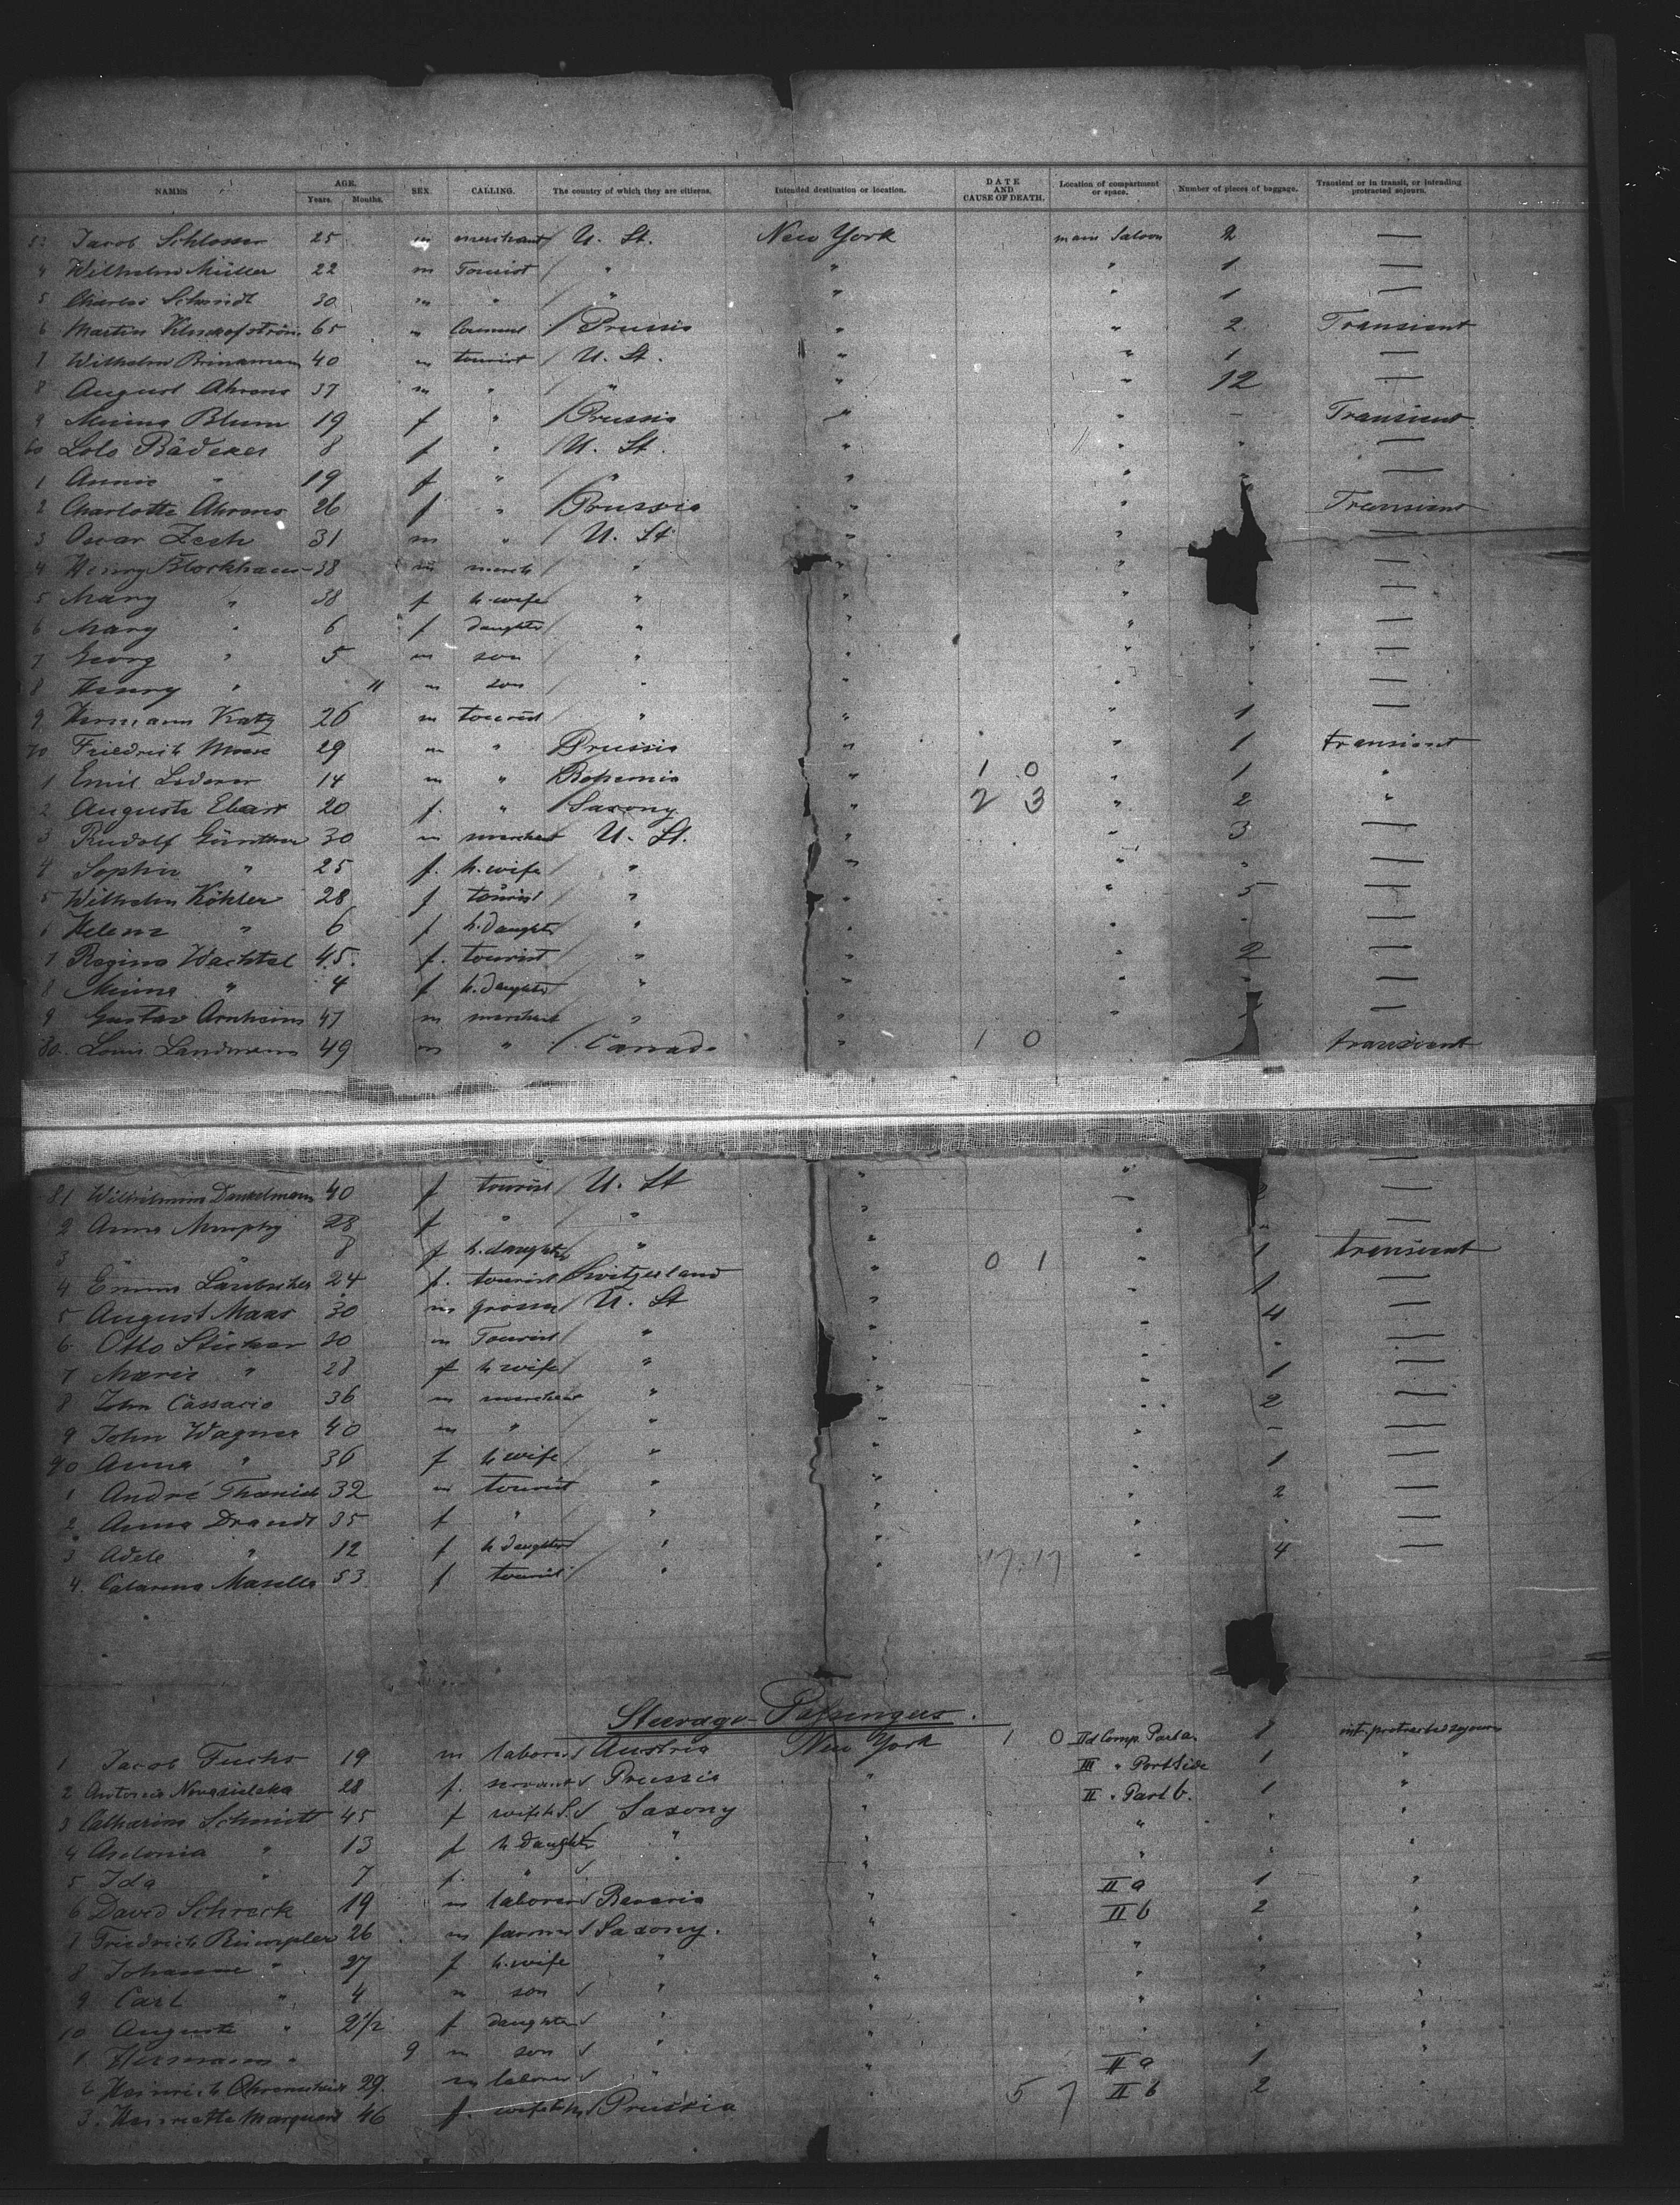 NAMES AGE. Years. Months. SEX. CALLING. The country of which they are citizens. Intended destination or location. DATE AND CAUSE OF DEATH. Location of compartment or space. Number of pieces of baggage. Transient or in transit, or intending protracted sojourn.
53 Jacob Schlosser 25 m merchant U. St. New York main Saloon 2 —
4 Wilhelm Müller 22 m Tourist " " " 1 —
5 Charles Schmidt 30 m " " " " 1 —
6 Martin 65 m Prussia " " 2 Transient
7 Wilhelm Brinkmann 40 m tourist U. St. " " 1 —
8 August Ahrens 37 m " " " " 12 —
9 Minna Blum 19 f " Prussia " " - Transient
60 Lolo Bädeker 8 f " U. St. " " " —
1 Annie " 19 f " " " " " —
2 Charlotte Ahrens 26 f " Prussia " " Transient
3 Oscar Zech 31 m " U. St. " " —
4 Henry Blockhaus 38 m merch " " " —
5 Mary " 38 f h. wife " " " —
6 Mary " 6 f daughter " " " " —
7 Georg " 5 m son " " " " —
8 Henry " 11 m son " " " " —
9 Hermann Katz 26 m tourist " " " 1 —
70 Friedrich Moese 29 m " Prussia " " 1 transient
1 Emil Lederer 14 m " Bohemia " 1 0 " 1 "
2 Auguste Ebert 20 f. " Saxony " 2 3 " 2 "
3 Rudolf Günther 30 m merchant U. St. " " 3 —
4 Sophie " 25 f. h. wife " " " " —
5 Wilhelm Köhler 28 f tourist " " " 5 —
6 Helene " 6 f h. daughter " " " —
7 Regina Wachtel 45. f. tourist " " " 2 —
8 Minna " 4 f h. daughter " " " " —
9 Gustav Arnheim 47 m merchant " " " —
80. Louis Landmann 49 m " Canada " 1 0 transient
81 Wilhelmine Danzelmann 40 f tourist U. St " " —
2 Anna Murphy 28 f " " " " —
3 " " 8 f h. daughter " " " " —
4 Emma 24 f. tourist Switzerland " 0 1 " 1 transient
5 August Maas 30 m grosser U. St " 1 —
6 Otto Stücker 30 m Tourist " " " 4 —
7 Marie " 28 f h wife " " " " —
8 John Cassacio 36 m merchant " " " 1 —
9 John Wagner 40 m " " " " 2 —
90 Anna " 36 f h wife " " " - —
1 André 32 m tourist " " 1 —
2 Anna Drandt 35 f " " " " 2 —
3 Adele " 12 f h daughter " " " " —
4. Catarena Masella 53 f tourist " 17 17 " 4 —
Steerage-Passengers.
1 Jacob Fuchs 19 m laborer Austria New York 1 0 IId Comp. Part a. 1 int. protracted sojourn
2 Antonia 28 f. servant Prussia " III " Port Side 1 "
3 Catharina Schmitt 45 f wife Saxony " II " Part b. 1 "
4 Asdonia " 13 f h daughter " " " " "
5 Ida " 7 f. " " " " "
6 David Schreck 19 m laborer Bavaria " II a 1 "
7 Friedrich Rümpler 26 m farmer Saxony. " II b 2 "
8 Johanne " 27 f h. wife " " " " "
9 Carl " 4 m son " " " " "
10 Auguste " 2½ f daughter " " " " "
1 Hermann " 9 m son " "
2 Heinrich 29. m laborer " " II a 1 "
3. Henriette Marquard 46 f. Prussia " 5 7 II b 2 "